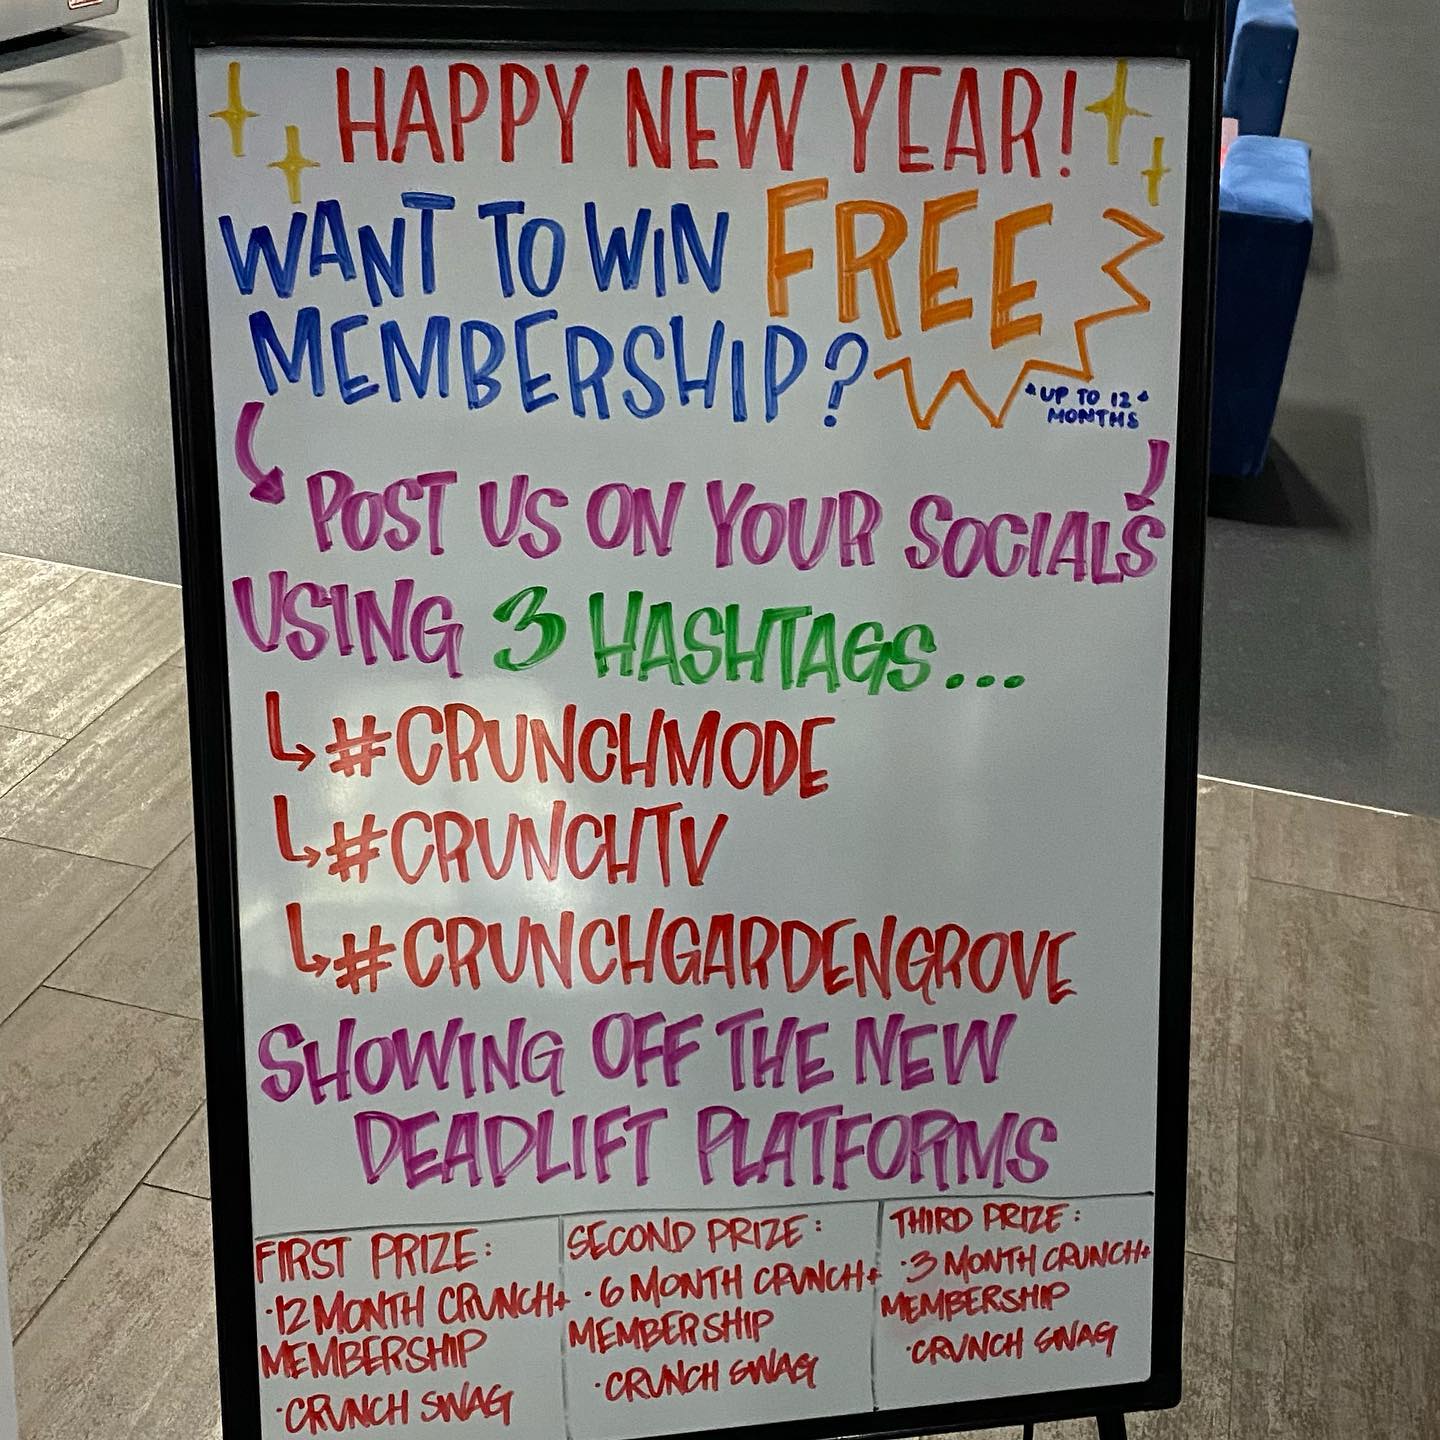 HAPPY NEW YEAR!
WANT TO WIN FREE
MEMBERSHIP?
*UP TO 12*
MONTHS
POST US ON YOUR SOCIALS
USING 3 HASHTAGS...
#CRUNCHMODE
#CRUNCHTV
#CRUNCHGARDENGROVE
SHOWING OFF THE NEW
DEADLIFT PLATFORMS
FIRST PRIZE:
·12 MONTH CRUNCH+
MEMBERSHIP
·CRUNCH SWAG
SECOND PRIZE:
·6 MONTH CRUNCH+
MEMBERSHIP
·CRUNCH SWAG
THIRD PRIZE:
·3 MONTH CRUNCH+
MEMBERSHIP
·CRUNCH SWAG